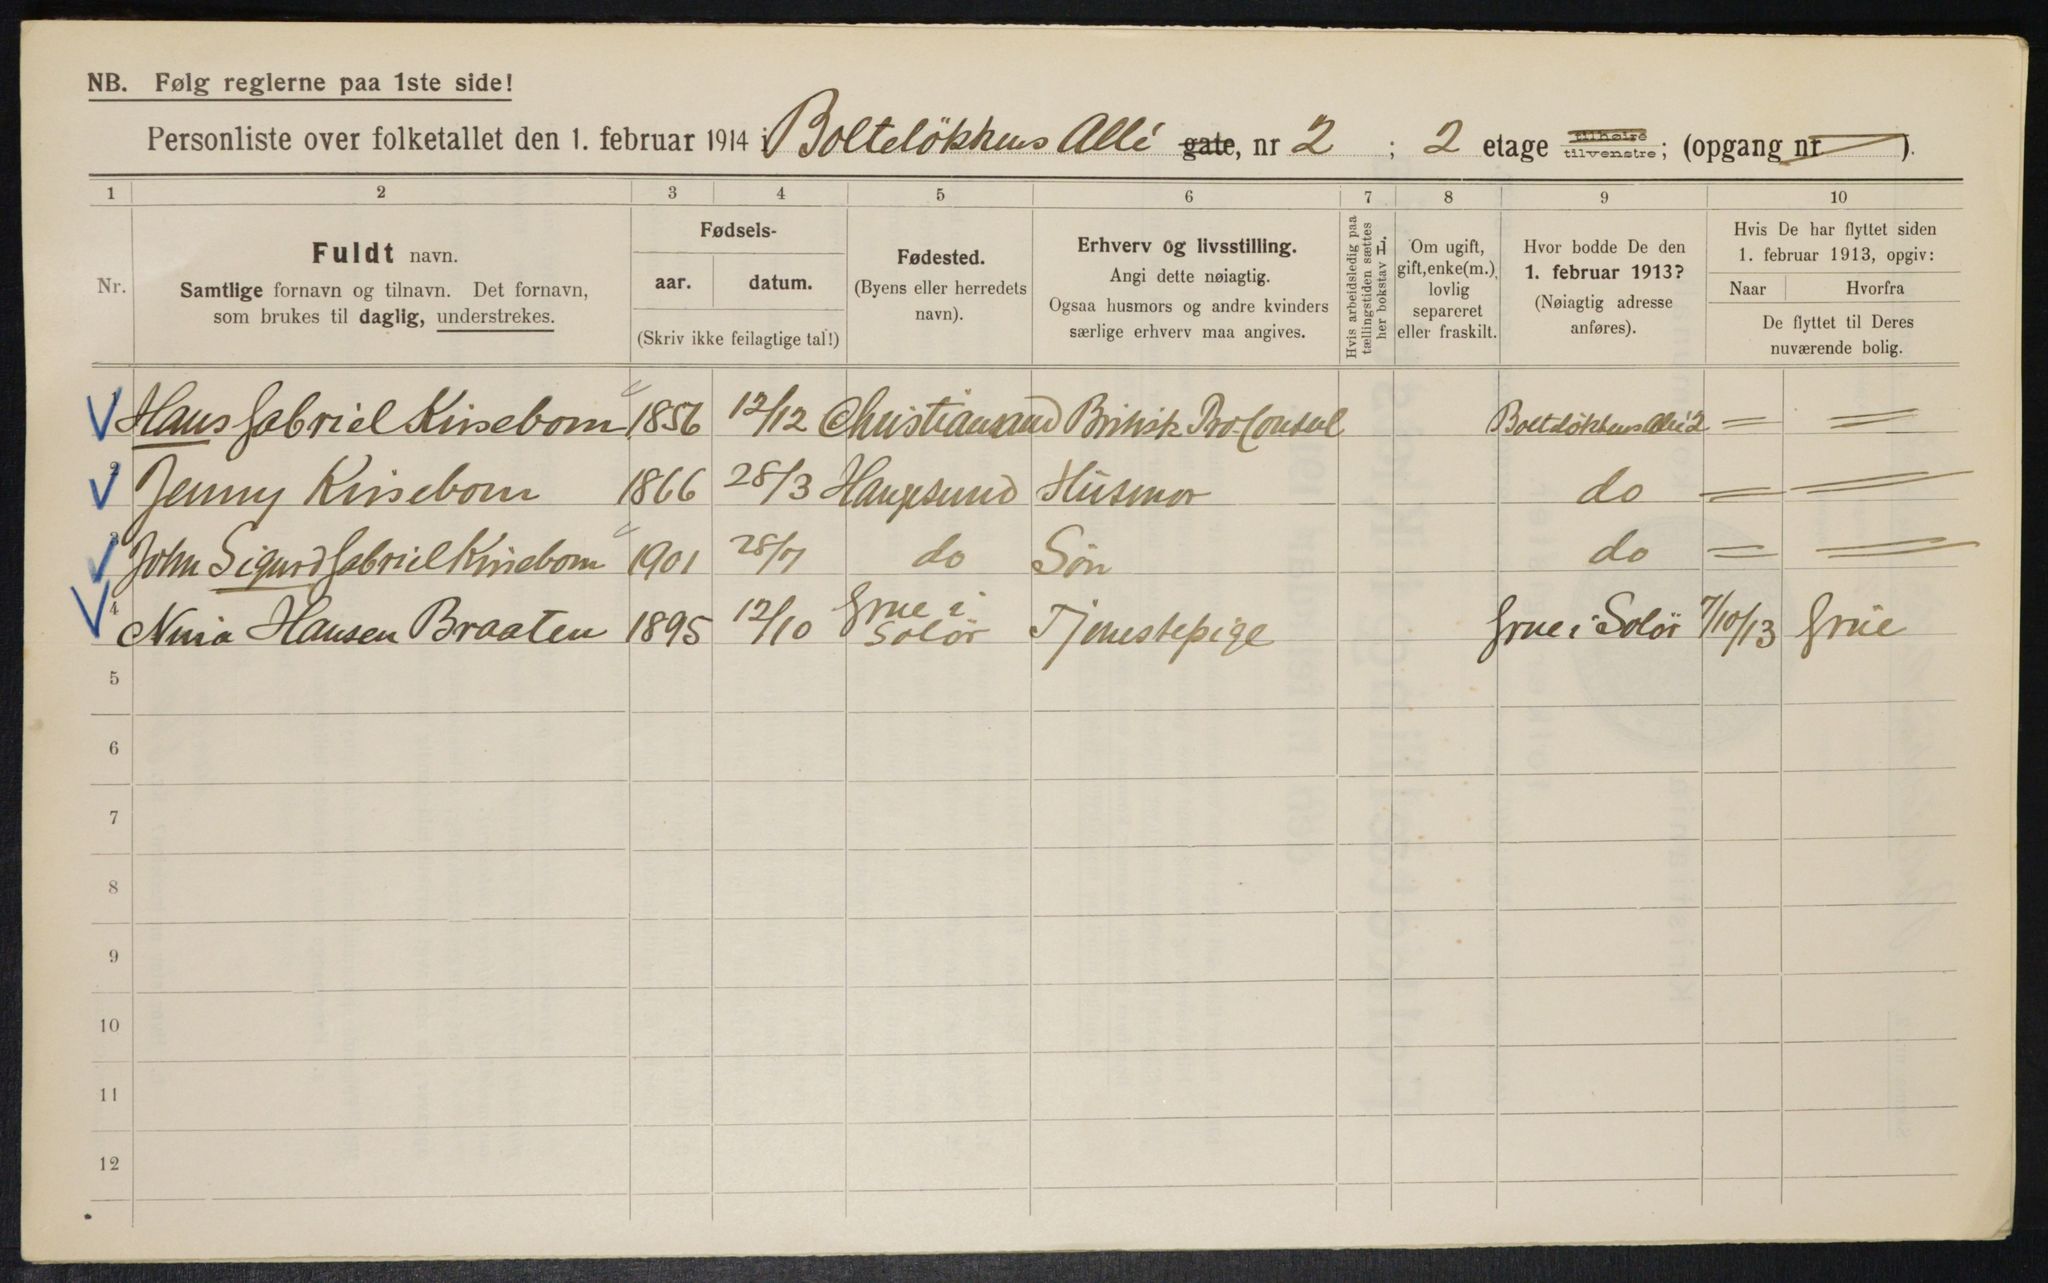 NB. Følg reglerne paa 1ste side!
Personliste over folketallet den 1. februar 1914 i Bolteløkkens Allé gate, nr 2 ; 2 etage tilhøire tilvenstre; (opgang nr ).
1 2 3 4 5 6 7 8 9 10
Nr.
Fuldt navn.
Samtlige fornavn og tilnavn. Det fornavn,
som brukes til daglig, understrekes.
Fødsels-
aar. datum.
(Skriv ikke feilagtige tal!)
Fødested.
(Byens eller herredets
navn).
Erhverv og livsstilling.
Angi dette nøiagtig.
Ogsaa husmors og andre kvinders
særlige erhverv maa angives.
Hvis arbeidsledig paa
tællingstiden sættes
her bokstav L.
Om ugift,
gift, enke(m.),
lovlig
separeret
eller fraskilt.
Hvor bodde De den
1. februar 1913?
(Nøiagtig adresse
anføres).
Hvis De har flyttet siden
1. februar 1913, opgiv:
Naar Hvorfra
De flyttet til Deres
nuværende bolig.
Hans Gabriel Kinsebom 1856 12/12 Christiansand Britisk Pro-Consul Bolteløkkens Allé 2 = =
2 Jenny Kinsebom 1866 28/3 Haugesund Husmor do = =
3 John Sigurd Gabriel Kinsebom 1901 28/7 do Søn do = =
4 Nina Hansen Braaten 1895 12/10 Grue i Solør Tjenestepige Grue i Solør 7/10/13 Grue
5
6
7
8
9
10
11
12